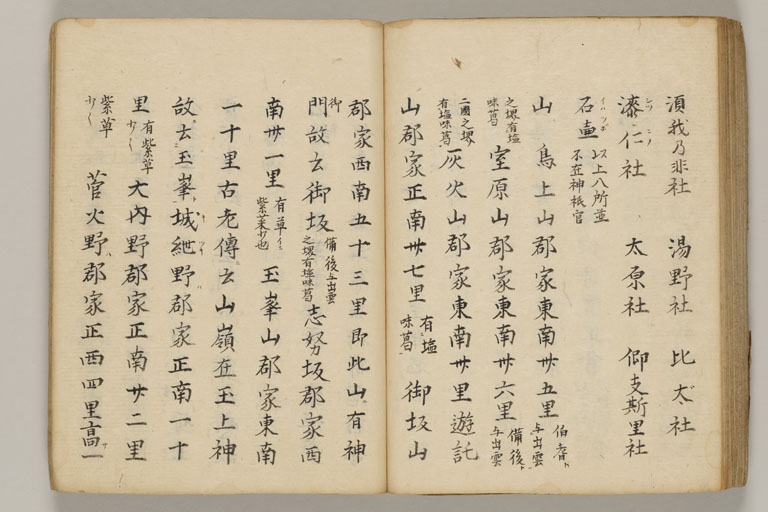 須我乃非社 湯野社 比太社
漆仁社 太原社 仰支斯里社
石壷 以上八所並不在神祇官
山 鳥上山郡家東南卅五里 伯耆与出雲
之堺有塩味葛 室原山郡家東南卅六里 備後与出雲
二國之堺有塩味葛 灰火山郡家東南卅里遊託
山郡家正南卅七里 有塩味葛 御坂山
郡家西南五十三里即此山有神
御門故云御坂 備後与出雲之堺有塩味葛 志努坂郡家西
南卅一里 有草紫菜少也 玉峯山郡家東南
一十里古老傳云山嶺在玉上神
故云玉峯 城紲野郡家正南一十
里 有紫草少々 大内野郡家正南廿二里
紫草少々 菅火野郡家正西四里高一